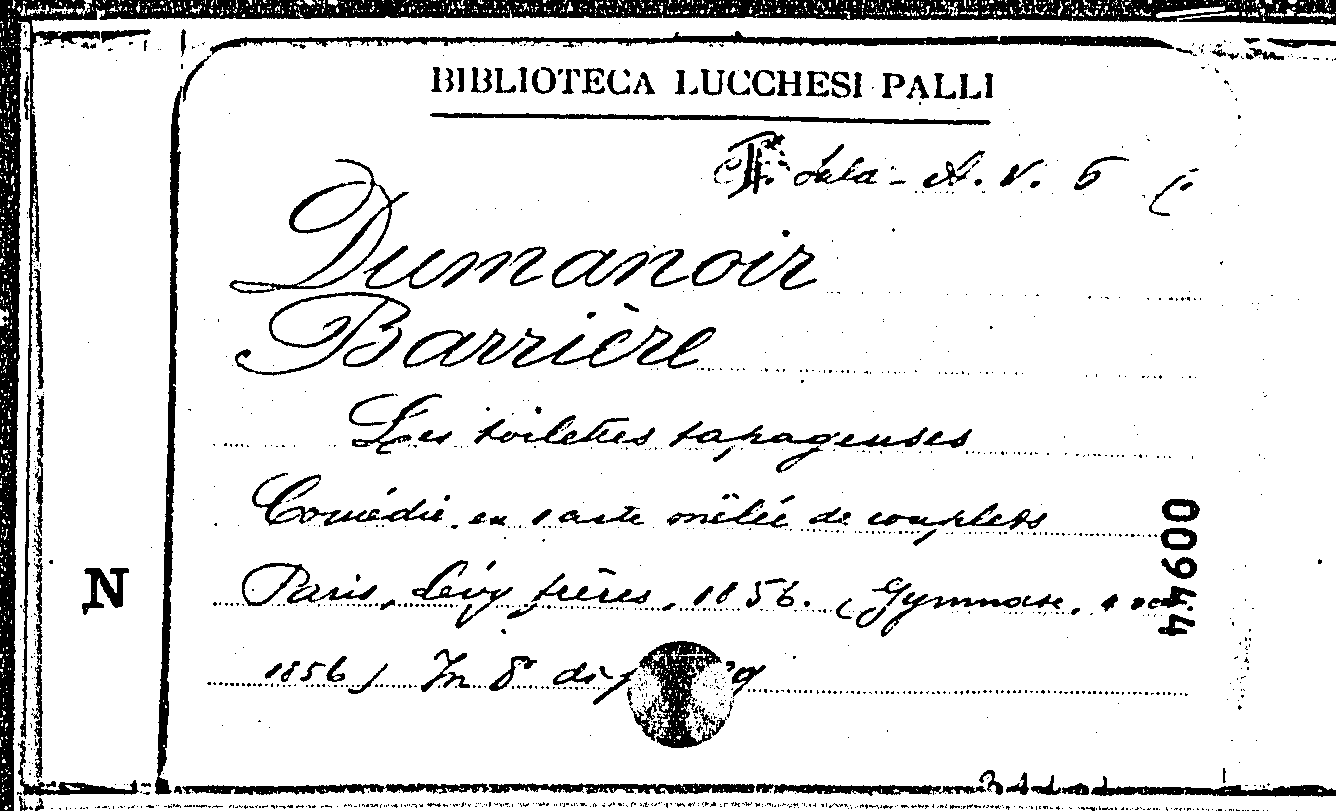 BIBLIOTECA LUCCHESI PALLI
Sala - A. V. 6 (.
Dumanoir
Barrière
Les toilettes tapageuses
Comédie en 1 acte mêlée de couplets
Paris, Lévy frères, 1856. (Gymnase, 4
1856) In 8° di
N
44600